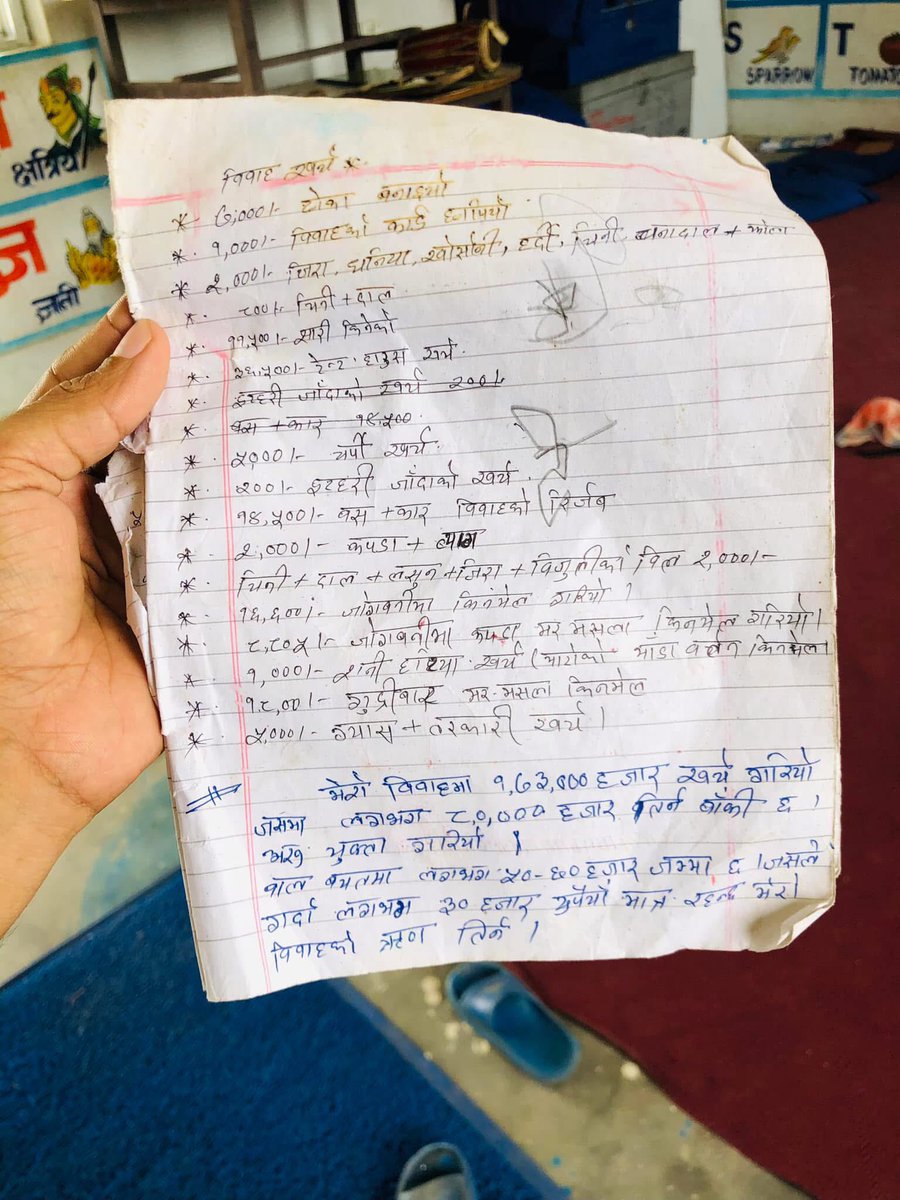 क्षत्रिय
ज्ञ
ज्ञानी
S
SPARROW
T
TOMATO
विवाह खर्च *.
* ७,०००।- ढोका बनाइयो
* १,०००।- विवाहको कार्ड छापियो
* २,०००।- जिरा, धनिया, खोर्सानी, हर्दी, चिनी, चनादाल + झोला
* ८००।- चिनी + दाल
* ११,५००।- सारी किनेको
* ३६,५००।- टेन्ट हाउस खर्च
* इटहरी जाँदाको खर्च २००।-
* बस + कार १४,५००
* ५०००।- चर्पी खर्च
* २००।- इटहरी जाँदाको खर्च
* १४,५००।- बस + कार विवाहको रिर्जब
* २,०००।- कपडा + ब्याग
* चिनी + दाल + लसुन + जिरा + विजुलीको विल २,०००।-
* १६,६००।- जोगवनीमा किनमेल गरियो।
* ८,८०५।- जोगवनीमा कपडा मर मसला किनमेल गरियो।
* १,०००।- शनी हटिया खर्च (माटोको भाँडा वर्तन किनमेल।
* १८,००।- गुद्रीबार मर-मसला किनमेल
* ५,०००।- ग्यास + तरकारी खर्च।
मेरो विवाहमा १,६३,००० हजार खर्च गरियो
जसमा लगभग ८०,००० हजार तिर्न बाँकी छ।
अरु चुक्ता गरियो।
बाल बचतमा लगभग ५०-६० हजार जम्मा छ। जसले
गर्दा लगभग ३० हजार रुपैयाँ मात्र रहन्छ मेरो
विवाहको ऋण तिर्न।